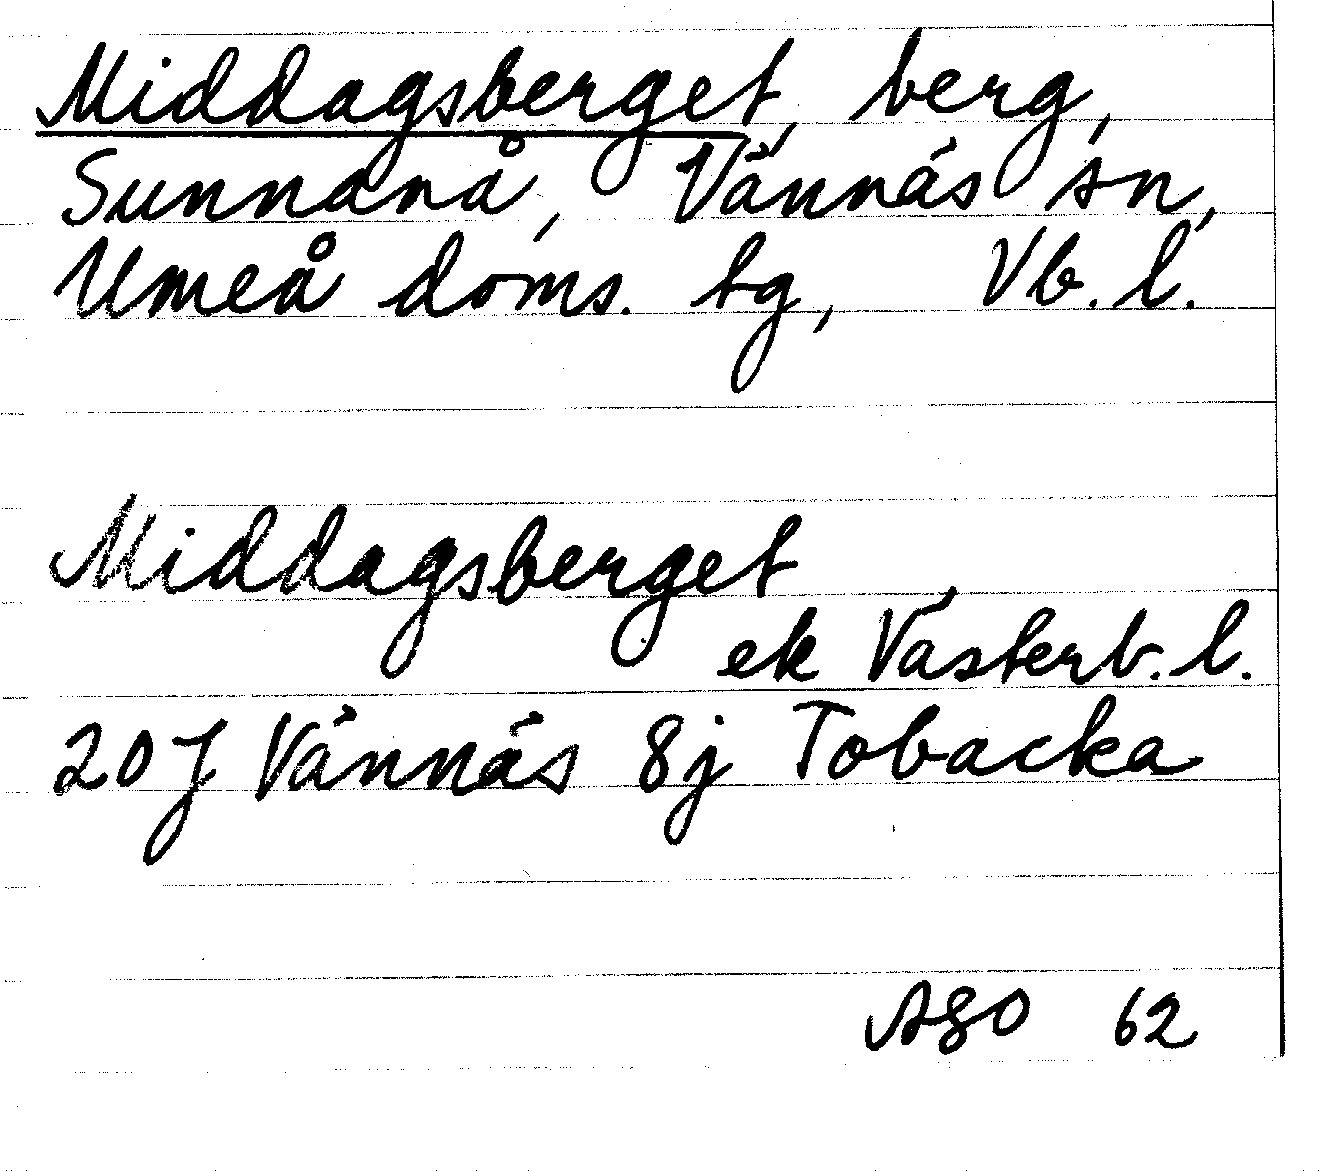 Middagsberget, berg,
Sunnanå, Vännäs sn,
Umeå doms. tg, Vb. l.
Middagsberget
ek Västerb. l.
20 J Vännäs 8j Tobacka
62